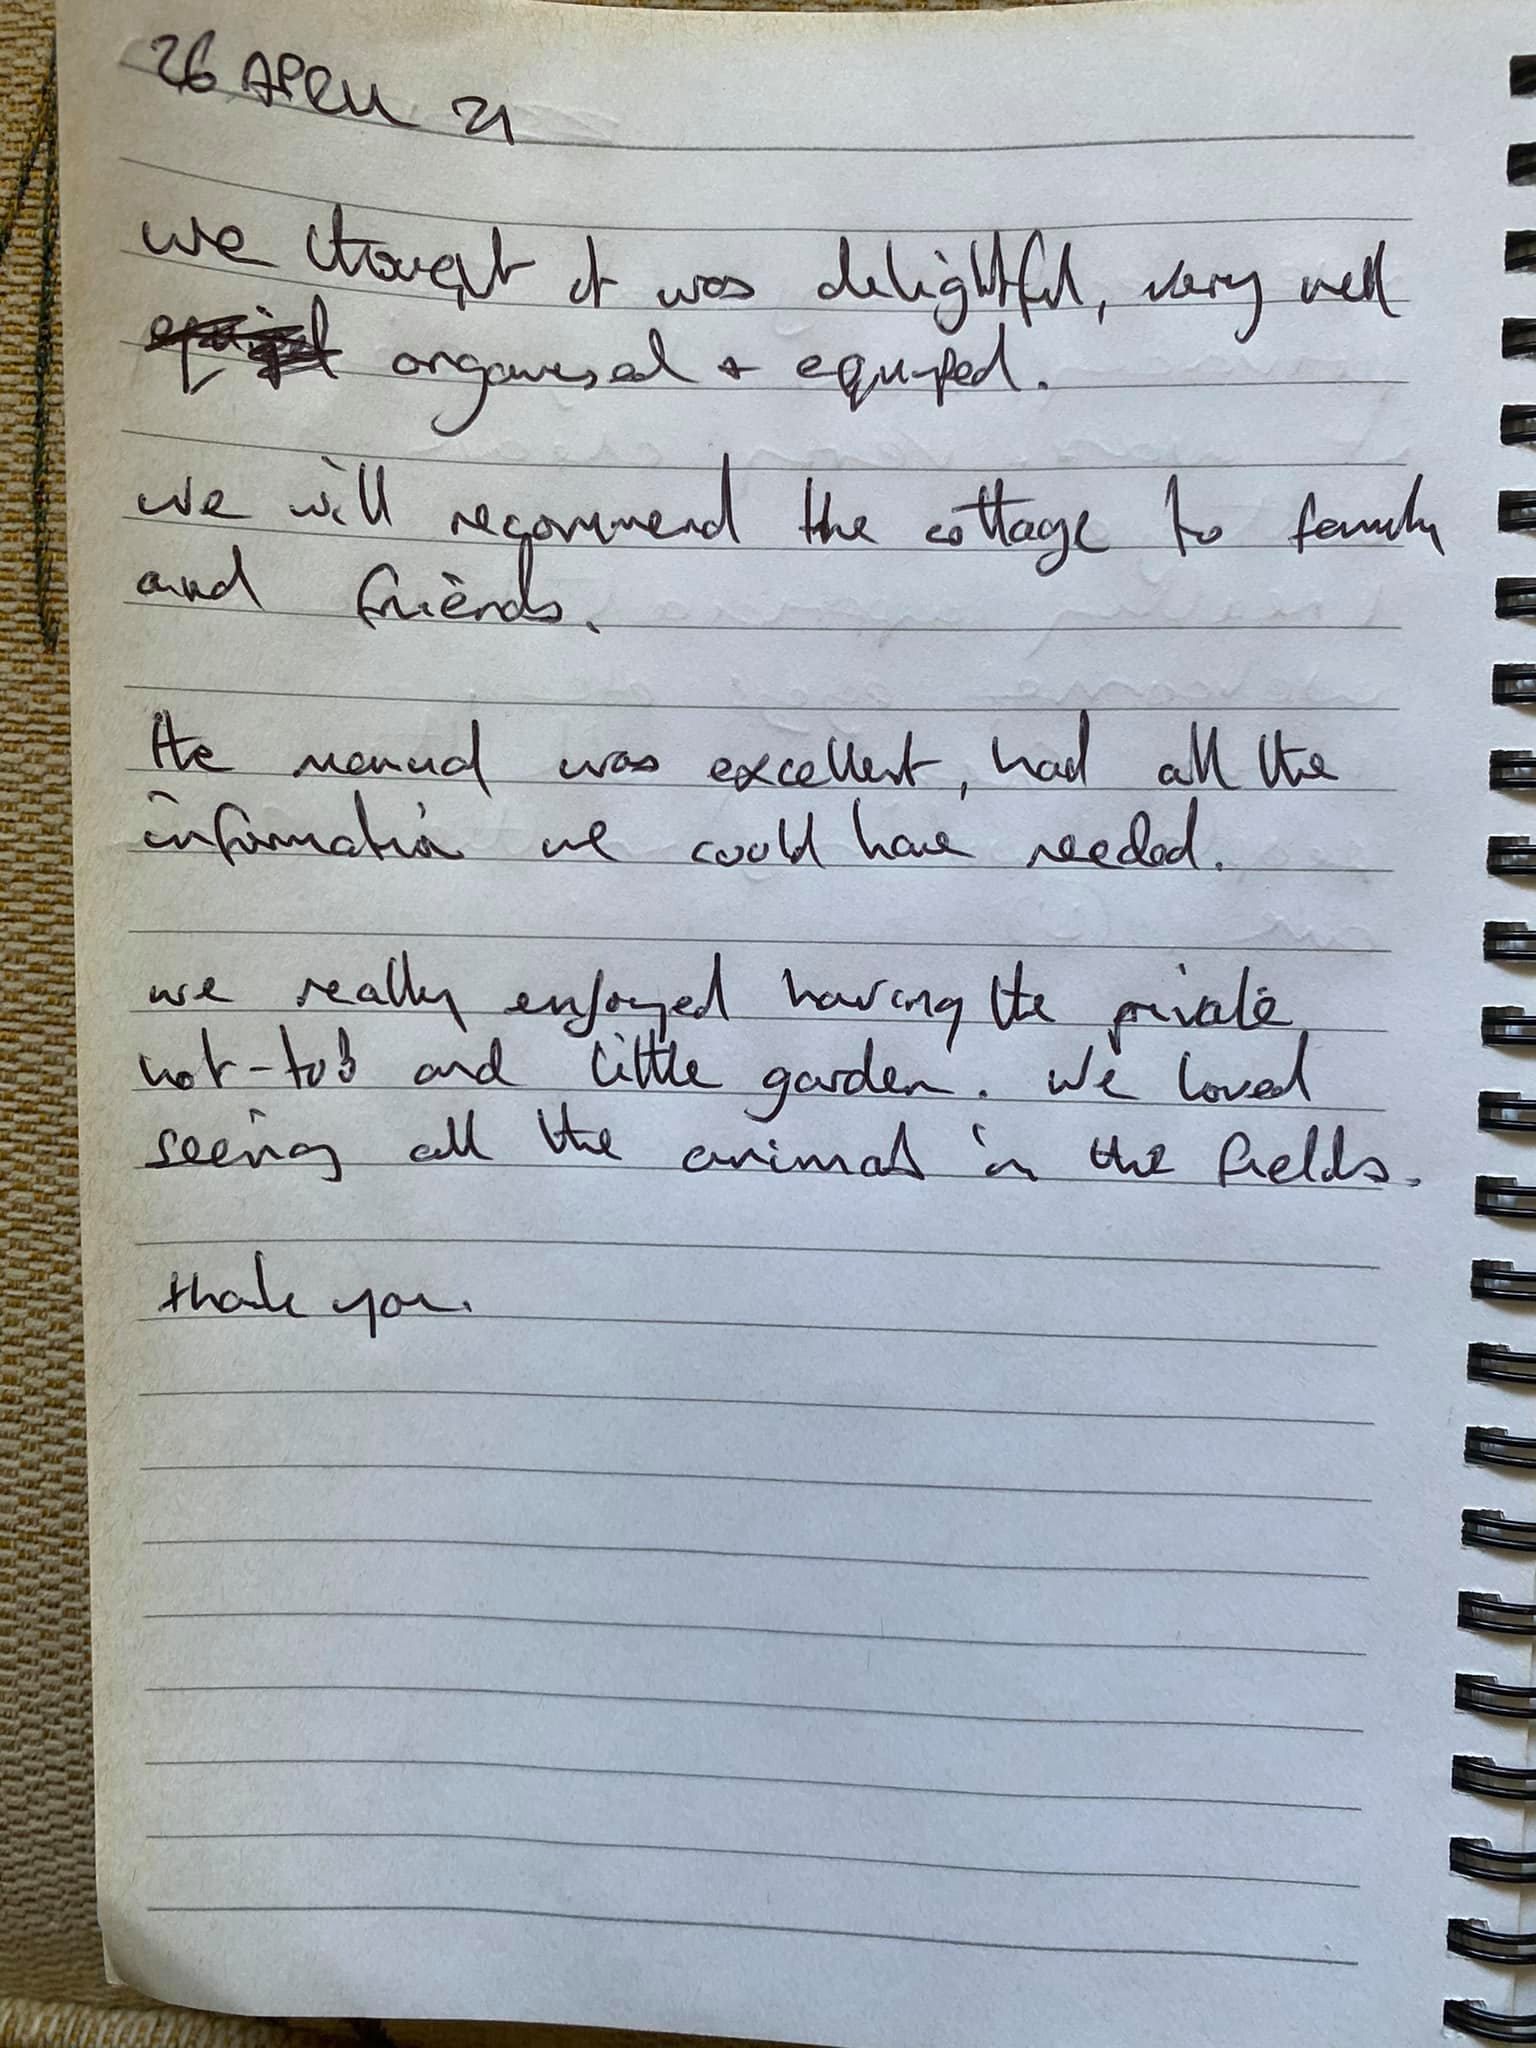 26 APRIL 21
we thought it was delightful, very well
organised + equipped.
we will recommend the cottage to family
and friends.
The manual was excellent, had all the
information we could have needed.
we really enjoyed having the private
hot-tub and little garden. We loved
seeing all the animals in the fields.
thank you.